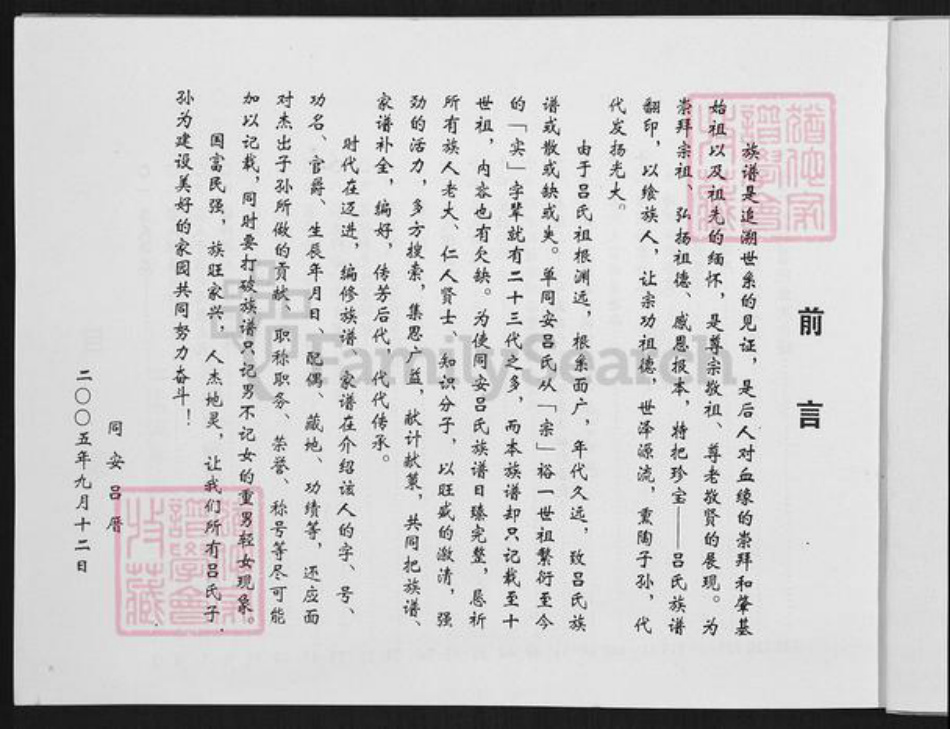 前言
族谱是追溯世系的见证，是后人对血缘的崇拜和肇基
始祖以及祖先的缅怀，是尊宗敬祖、尊老敬贤的展现。为
崇拜宗祖、弘扬祖德、感恩报本，特把珍宝——吕氏族谱
翻印，以绘族人，让宗功祖德，世泽源流，熏陶子孙，代
代发扬光大。
由于吕氏祖根渊远，根系面广，年代久远，致吕氏族
谱或散或缺或失。单同安吕氏从「宗」裕一世祖繁衍至今
的「实」字辈就有二十三代之多，而本族谱却只记载至十
世祖，内容也有欠缺。为使同安吕氏族谱日臻完整，恳祈
所有族人老大、仁人贤士、知识分子，以旺盛的激清，强
劲的活力，多方搜索，集思广益，献计献策，共同把族谱、
家谱补全，编好，传芳后代，代代传承。
时代在迈进，编修族谱、家谱在介绍该人的字、号、
功名、官爵、生辰年月日、配偶、藏地、功绩等，还应面
对杰出子孙所做的贡献、职称职务、荣誉、称号等尽可能
加以记载，同时要打破族谱只记男不记女的重男轻女现象。
国富民强，族旺家兴，人杰地灵，让我们所有吕氏子
孙为建设美好的家园共同努力奋斗！
同安吕厝
二〇〇五年九月十二日
FamilySearch